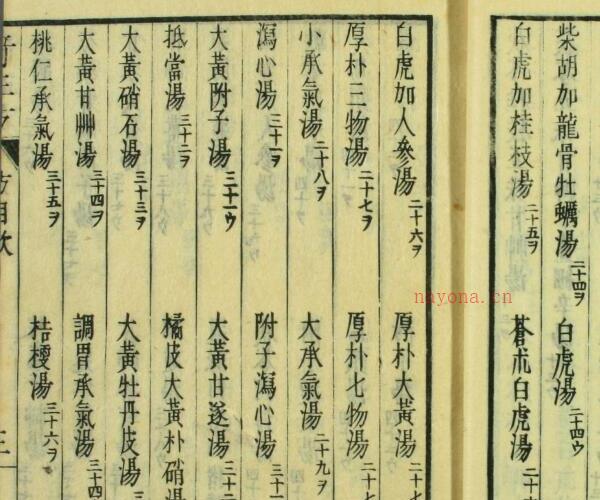 柴胡加龍骨牡蠣湯二十四ヲ 白虎湯二十四ウ
白虎加桂枝湯二十五ヲ 蒼朮白虎湯二十
白虎加人參湯二十六ヲ 厚朴大黃湯二十七
厚朴三物湯二十七ヲ 厚朴七物湯二十七
小承氣湯二十八ヲ 大承氣湯二十九ヲ
瀉心湯三十一ヲ 附子瀉心湯三十一
大黃附子湯三十一ウ 大黃甘遂湯三十二
抵當湯三十二ヲ 橘皮大黃朴硝湯
大黃硝石湯三十三ヲ 大黃牡丹皮湯三十
大黃甘艸湯三十四ヲ 調胃承氣湯三十四
桃仁承氣湯三十五ヲ 桔梗湯三十六ヲ
方目次 三
nayona.cn